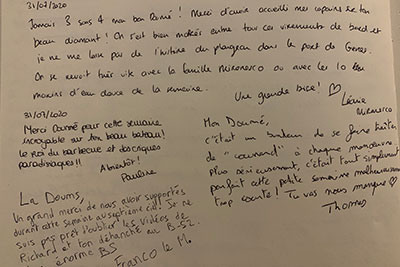 31/07/2020
Jamais 3 sans 4 mon bon Doumé ! Merci d'avoir accueilli mes copains sur ton
beau diamant ! On s'est bien marrés entre tous ces virements de bord et
je ne me lasse pas de l'histoire du plongeon dans le port de Gênes.
On se revoit très vite avec la famille Mironesco ou avec les 10
marins d'eau douce de la semaine.
Une grande bise ! ♡
Léanie
Mironesco
31/07/2020
Merci Doumé pour cette semaine
incroyable sur ton beau bateau !
le Roi du barbecue et des criques
paradisiaques !!
A bientôt !
Pauline
Mon Doumé,
c'était un bonheur de se faire traiter
de "counard" à chaque manoeuvre
Plus sérieusement, c'était tout simplement
parfait cette petite semaine malheureusement
trop courte ! Tu vas nous manquer ♡
Thomas
La Doums,
Un grand merci de nous avoir supportés
durant cette semaine au septième ciel. Je ne
suis pas prêt d'oublier les vidéos de
Richard et ton détaché au B-52.
énorme BS
Franco le M.